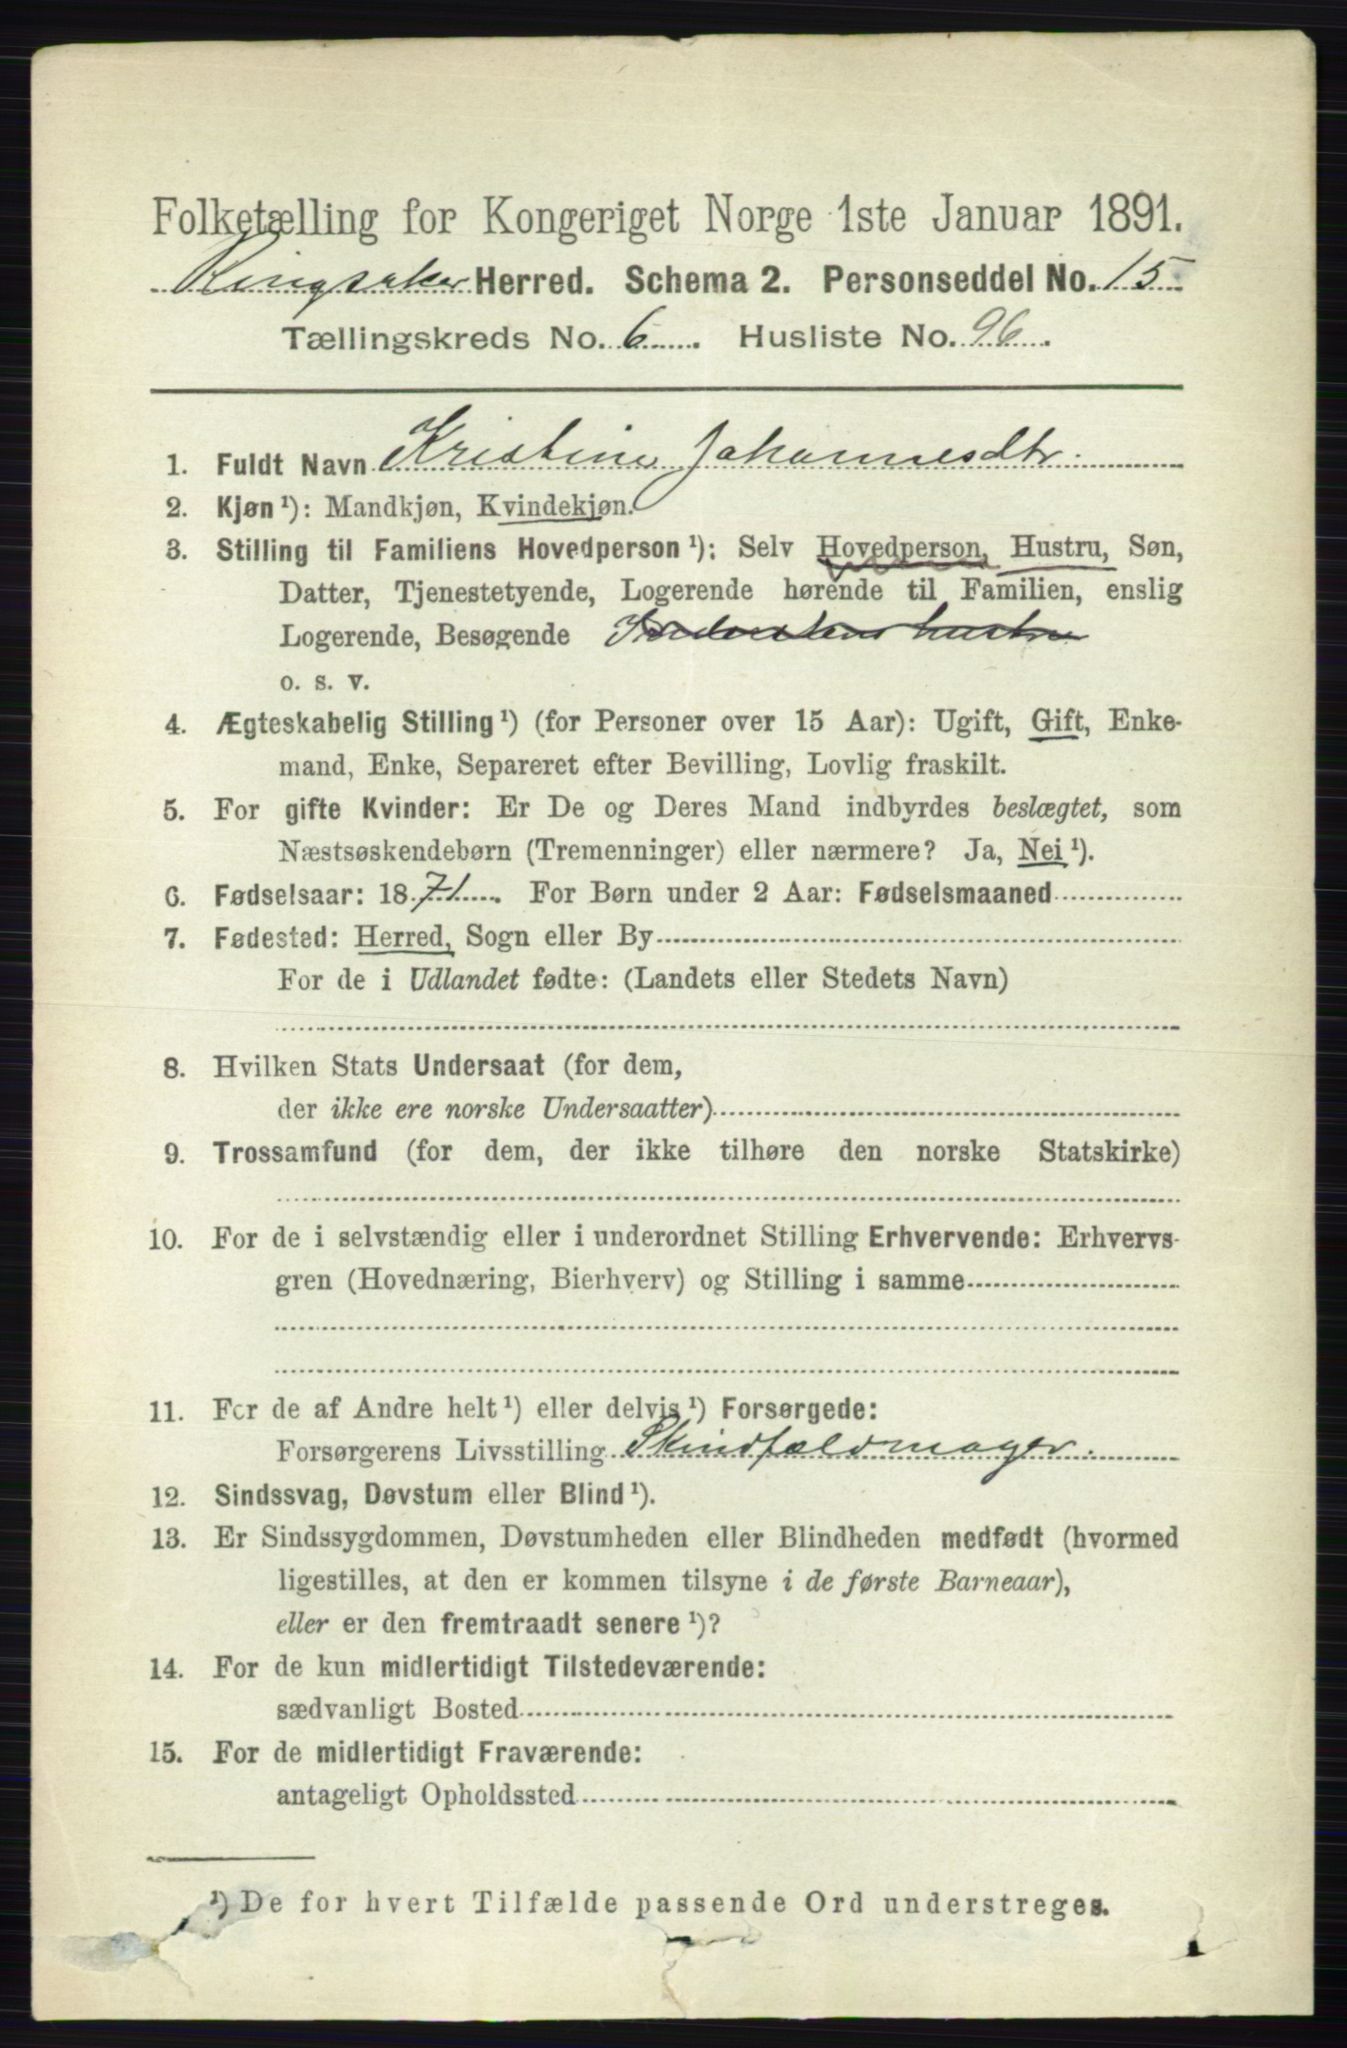 Folketælling for Kongeriget Norge 1ste Januar 1891.
Ringsaker Herred. Schema 2. Personseddel No. 15
Tællingskreds No. 6. Husliste No. 96.
1. Fuldt Navn Kristine Johannesdtr.
2. Kjøn¹): Mandkjøn, Kvindekjøn.
3. Stilling til Familiens Hovedperson¹): Selv Hovedperson, Hustru, Søn,
Datter, Tjenestetyende, Logerende hørende til Familien, enslig
Logerende, Besøgende
o. s. v.
4. Ægteskabelig Stilling¹) (for Personer over 15 Aar): Ugift, Gift, Enke-
mand, Enke, Separeret efter Bevilling, Lovlig fraskilt.
5. For gifte Kvinder: Er De og Deres Mand indbyrdes beslægtet, som
Næstsøskendebørn (Tremenninger) eller nærmere? Ja, Nei¹).
6. Fødselsaar: 1871. For Børn under 2 Aar: Fødselsmaaned
7. Fødested: Herred, Sogn eller By
For de i Udlandet fødte: (Landets eller Stedets Navn)
8. Hvilken Stats Undersaat (for dem,
der ikke ere norske Undersaatter)
9. Trossamfund (for dem, der ikke tilhøre den norske Statskirke)
10. For de i selvstændig eller i underordnet Stilling Erhvervende: Erhvervs-
gren (Hovednæring, Bierhverv) og Stilling i samme
11. For de af Andre helt¹) eller delvis¹) Forsørgede:
Forsørgerens Livsstilling Skindfældmager.
12. Sindssvag, Døvstum eller Blind¹).
13. Er Sindssygdommen, Døvstumheden eller Blindheden medfødt (hvormed
ligestilles, at den er kommen tilsyne i de første Barneaar),
eller er den fremtraadt senere¹)?
14. For de kun midlertidigt Tilstedeværende:
sædvanligt Bosted
15. For de midlertidigt Fraværende:
antageligt Opholdssted
¹) De for hvert Tilfælde passende Ord understreges.